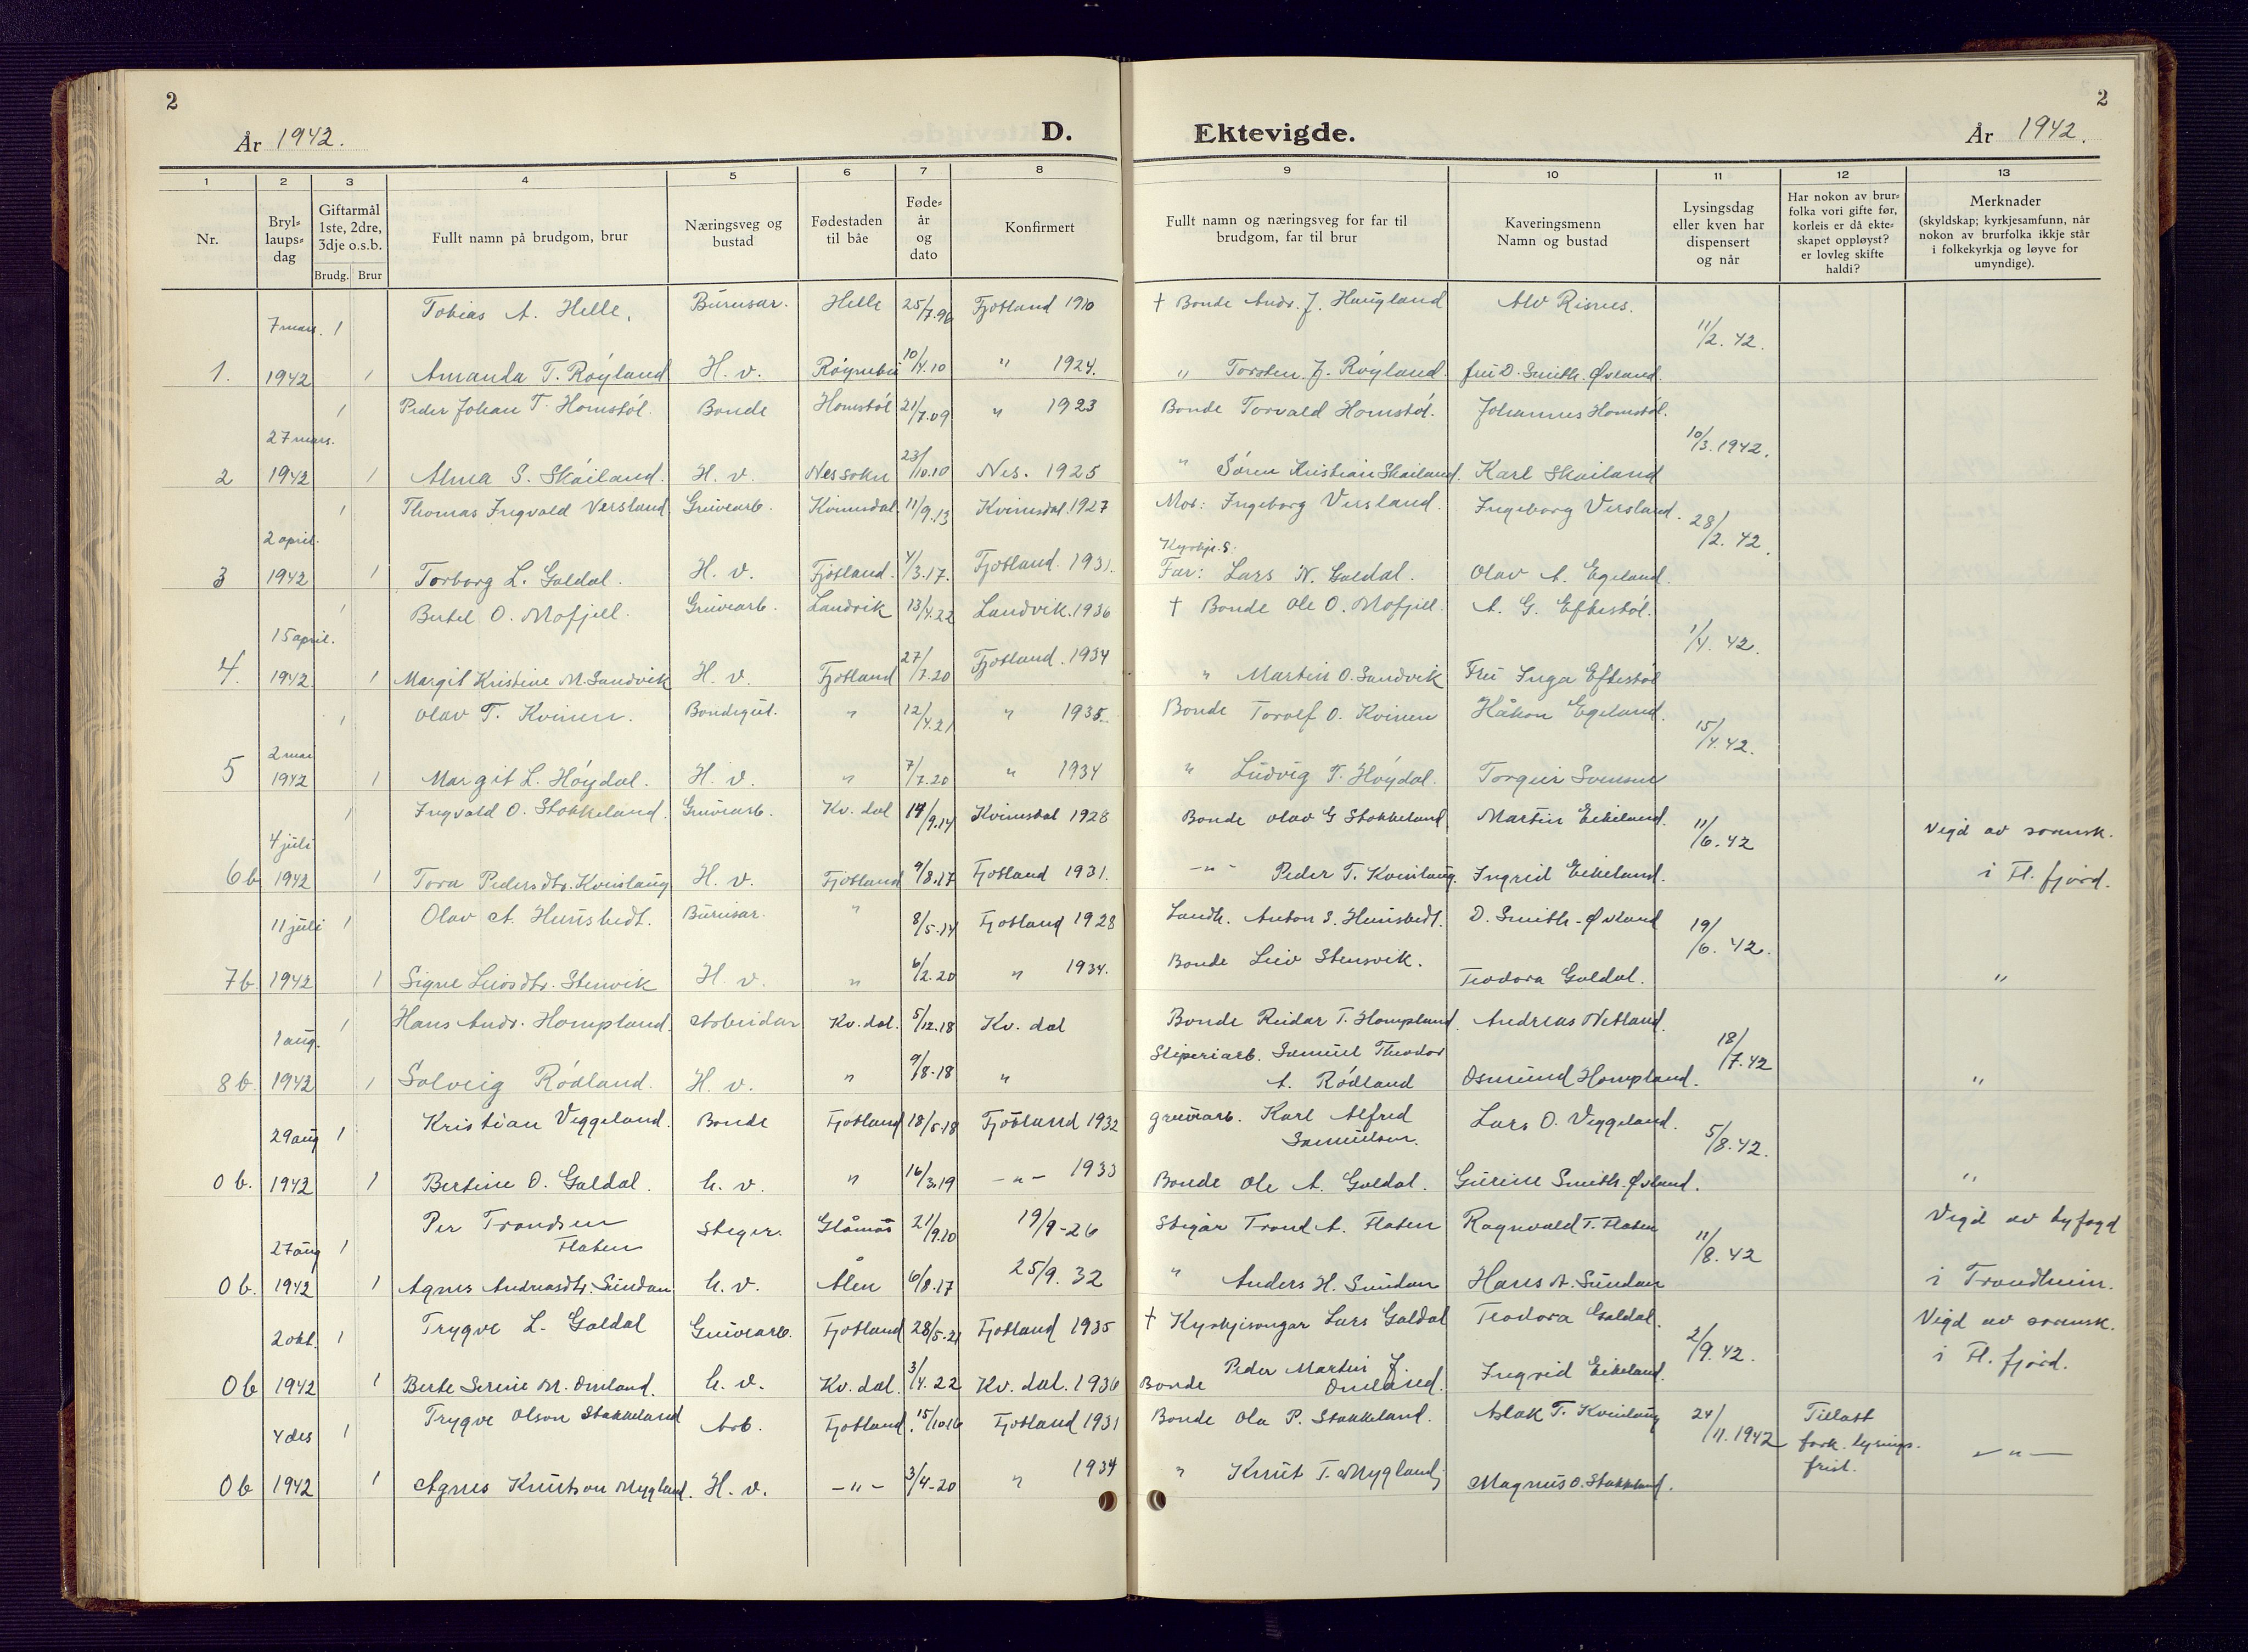 2
2
År 1942.
D.
Ektevigde.
År 1942.
1 2 3 4 5 6 7 8 9 10 11 12 13
Nr.
Bryl-
laups-
dag
Giftarmål
1ste, 2dre,
3dje o.s.b.
Brudg. Brur
Fullt namn på brudgom, brur
Næringsveg og
bustad
Fødestaden
til båe
Føde-
år
og
dato
Konfirmert
Fullt namn og næringsveg for far til
brudgom, far til brur
Kaveringsmenn
Namn og bustad
Lysingsdag
eller kven har
dispensert
og når
Har nokon av brur-
folka vori gifte før,
korleis er då ekte-
skapet oppløyst?
er lovleg skifte
haldi?
Merknader
(skyldskap; kyrkjesamfunn, når
nokon av brurfolka ikkje står
i folkekyrkja og løyve for
umyndige).
7 mars. 1 Tobias A. Helle. Bürusar. Helle 25/7.96 Fjotland 1910 † Bonde Andr. J. Haugland Alv Risnes.
11/2. 42.
1. 1942 1 Amanda T. Røyland H. v. 10/4.10 " 1924. " Torsten J. Røyland. fru D. Smith. Øvland.
1 Peder Johan T. Homstøl. Bonde Homstøl 21/7.09 " 1923 Bonde Torvald Homstøl. Johannes Homstøl.
27 mars. 10/3. 1942.
2 1942 1 Alma S. Skailand. H. v. Nes sokn 23/10.10 Nes. 1925 " Søren Kristian Skailand. Karl Skailand
1 Thomas Ingvald Versland Gruvearb. Kvinesdal. 11/9.13 Kvinesdal. 1927 Mor: Ingeborg Versland. Ingeborg Versland.
2 april. 28/2. 42.
Kyrkje.s.
3 1942 1 Torborg L. Galdal. H. v. Fjotland. 4/3.17. Fjotland. 1931. Far: Lars N. Galdal. Olav A. Egeland.
1 Bertel O. Mofjell. Gruvearb. Landvik 13/4.22 Landvik. 1936 † Bonde Ole O. Mofjell. A. G. Eftestøl.
15 april. 1/4. 42.
4. 1942. 1 Margit Kristine M. Sandvik H. v. Fjotland 27/7.20 Fjotland. 1934 " Martin O. Sandvik Fru Inga Eftestøl
1 Olav T. Kvinen. Bondegut. " 12/4.21 " 1935. Bonde Torolf O. Kvinen Håkon Egeland.
2 mai 15/4. 42.
5 1942 1 Margit L. Høydal. H. v. " 7/7.20 " 1934 " Ludvig T. Høydal. Torgeir
1 Ingvald O. Stokkeland. Gruvearb. Kv. dal 14/9.14 Kvinesdal 1928 Bonde Olav G Stokkeland Martin Eikeland. Vigd av sorensk.
4 juli 11/6. 42
6 b 1942 1 Tora Pedersdtr. Kvinlaug H. v. Fjotland 9/8.17 Fjotland 1931. -"- Peder T. Kvinlaug. Ingrid Eikeland. i Fl. fjord.
11 juli 1 Olav A. Hunsbedt. Bürusar. " 8/5.14 Fjotland 1928 Landh. Anton S. Hunsbedt. D. Smith-Øvland
19/6. 42.
7 b. 1942 1 Signe Leivsdtr. Stenvik H. v. " 6/2.20 " 1934. Bonde Leiv Stensvik. Teodora Galdal. "
1 aug. 1 Hans Andr. Hompland. Arbeidar Kv. dal. 5/12.18 Kv. dal Bonde Reidar T. Hompland. Andreas Netland.
Sliperiarb. Samuel Theodor 18/7.42
8 b. 1942 1 Solveig Rødland. H. v. " 9/8-18 " A. Rødland Osmund Hompland. "
29 aug 1 Kristian Veggeland. Bonde Fjotland 18/5.18 Fjotland 1932 gruvearb. Karl Alfred Lars O. Veggeland.
Samuelsen. 5/8. 42.
0 b. 1942 1 Bertine O. Galdal. h. v. " 16/3.19 -"- 1933 Bonde Ole A. Galdal. Gurine Smith. Øvland. "
Per Trondsen Steger. Glåmos 21/9.20 19/9-26 Stigar Trond A. Flaten Ragnvald T. Flaten Vigd av byfogd
27 aug 1 Flaten 11/8. 42
0 b. 1942 1 Agnes Andreasdtr. Sundan h. v. Ålen 6/8.17 25/9. 32 " Anders H. Sundan Hans A. Sundan i Trondheim.
2 okt. 1 Trygve L. Galdal Gruvearb. Fjotland 28/5.21 Fjotland 1935 † Kyrkjesongar Lars Galdal Teodora Galdal. Vigd av sorensk.
2/9. 42. i Fl. fjord.
0 b 1942 1 Berte Serine M. Omland. h. v. Kv. dal. 3/4. 22 Kv. dal. 1936 Bonde Peder Martin J. Omland. Ingrid Eikeland.
4 des 1 Trygve Olson Stakkeland Arb. Fjotland. 15/10.16 Fjotland 1931 Bonde Ola P. Stakkeland. Aslak T. Kvinlaug 24/11. 1942 Tillatt
fork. lysings-
frist. -"-
0 b 1942 1 Agnes Knutson Mygland. H. v. -"- 3/4-20 " 1934 " Knut T. Mygland; Magnus O. Stakkeland.